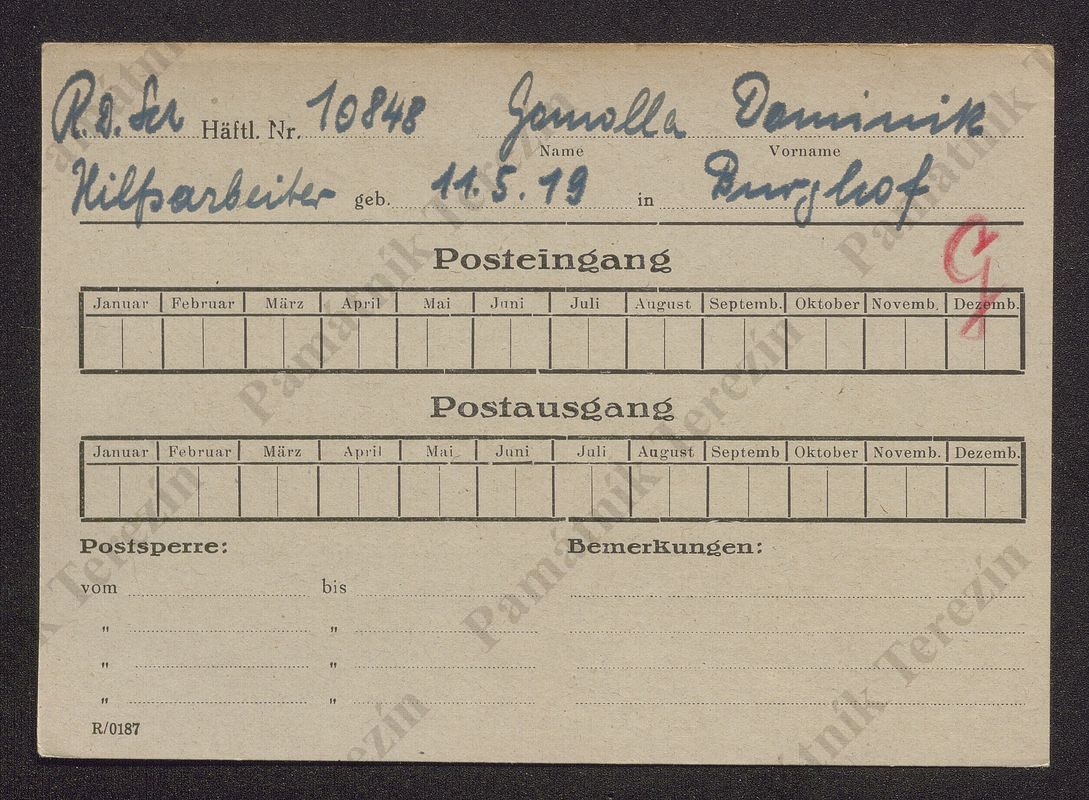 R.D.Sch Häftl. Nr. 10848 Gamolla Dominik
Name Vorname
Hilfsarbeiter geb. 11.5.19 in Burghof
G
Posteingang
Januar Februar März April Mai Juni Juli August Septemb. Oktober Novemb. Dezemb.
Postausgang
Januar Februar März April Mai Juni Juli August Septemb Oktober Novemb. Dezemb.
Postsperre: Bemerkungen:
vom bis
" "
" "
" "
R/0187
Památník Terezín
Památník Terezín
Památník Terezín
Památník Terezín
Památník Terezín